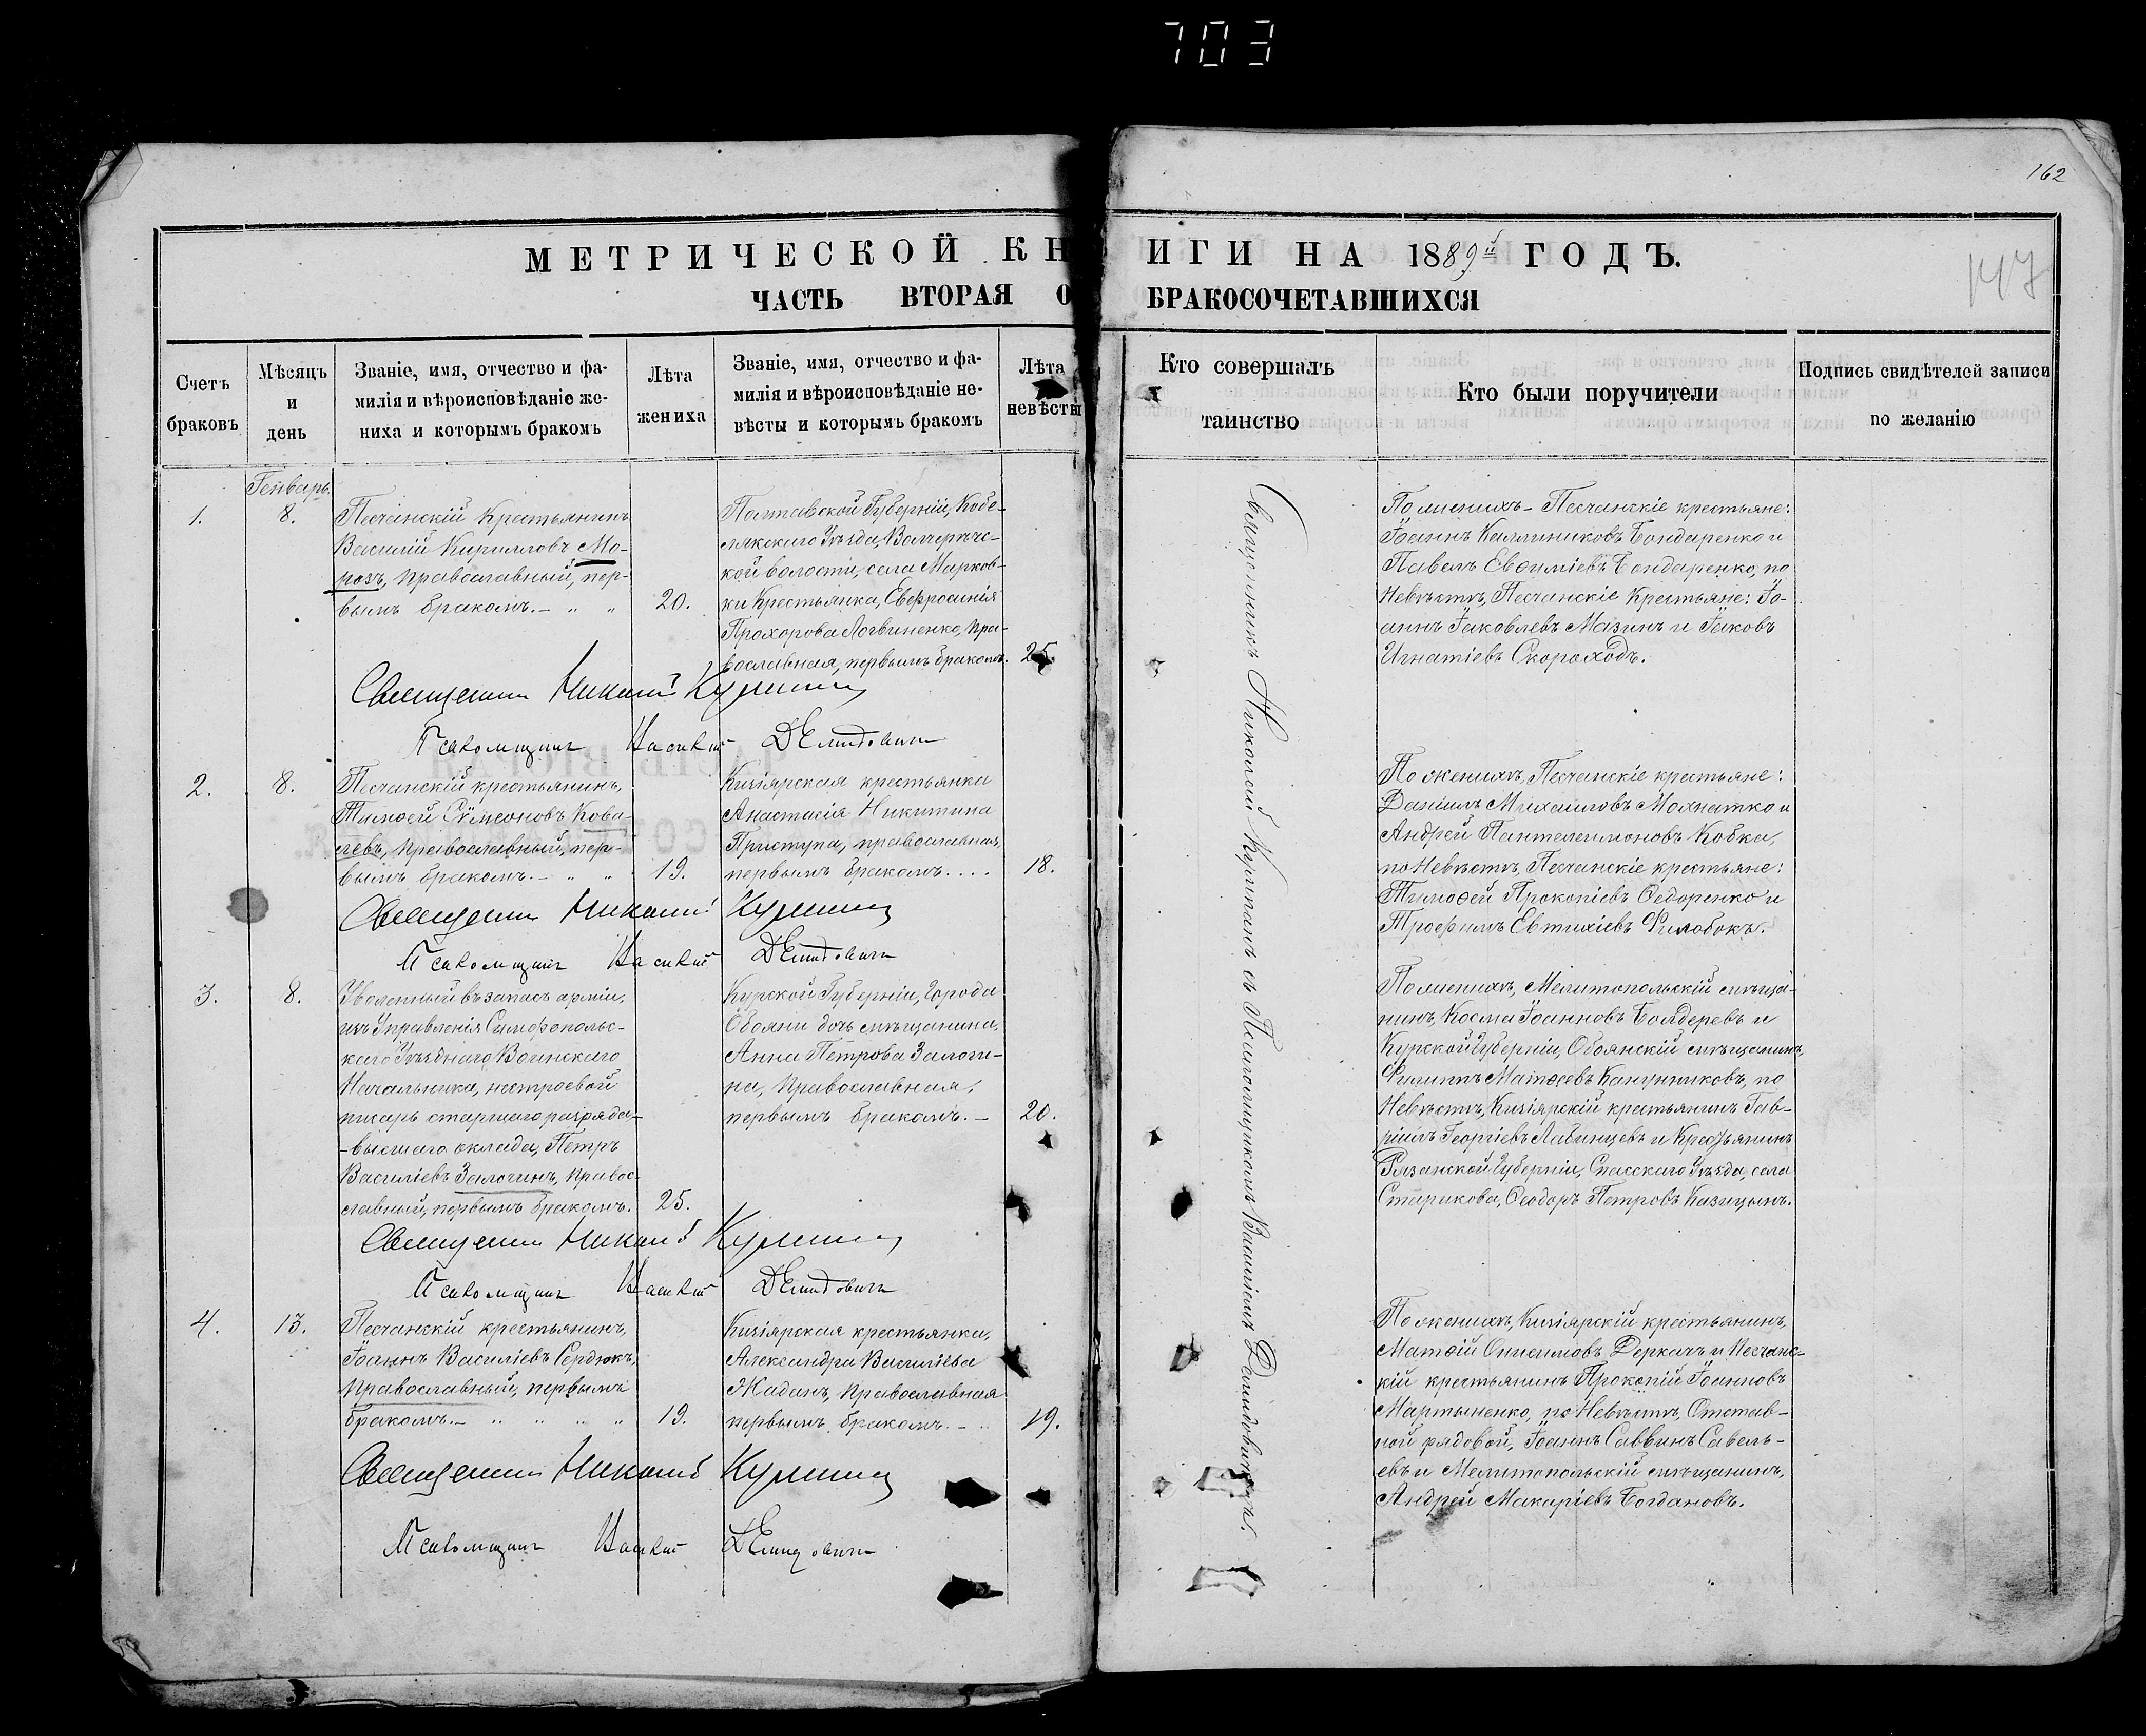 703
162
147
МЕТРИЧЕСКОЙ КНИГИ НА 1889й ГОДЪ.
ЧАСТЬ ВТОРАЯ О БРАКОСОЧЕТАВШИХСЯ
Счетъ браковъ
Мѣсяцъ и день
Званіе, имя, отчество и фа-
милія и вѣроисповѣданіе же-
ниха и которымъ бракомъ
Лѣта жениха
Званіе, имя, отчество и фа-
милія и вѣроисповѣданіе не-
вѣсты и которымъ бракомъ
Лѣта невѣсты
Кто совершалъ
таинство
Кто были поручители
Подпись свидѣтелей записи
по желанію
Генварь.
1.
8.
Песчанскій Крестьянинъ
Василій Кирилловъ Мо-
розъ, православный, пер-
вымъ бракомъ.– „ „
20.
Полтавской Губерніи, Кобе-
лякскаго Уѣзда,
кой волости, села Марков-
ки Крестьянка, Евфросинія
Прохорова Логвиненко, пра-
вославная, первымъ бракомъ.
25.
Священникъ Николай
Псаломщикъ Василій Демидовичъ
По женихѣ – Песчанскіе крестьяне:
Іоаннъ Каллиниковъ Бондаренко и
Павелъ Евѳиміевъ Бондаренко, по
Невѣстѣ, Песчанскіе Крестьяне: Іо-
аннъ Іаковлевъ Мазинъ и Іаковъ
Игнатіевъ Скороходъ.
2.
8.
Песчанскій крестьянинъ,
Тимоѳей Сѵмеоновъ Кова-
левъ, православный, пер-
вымъ бракомъ.– „ „
19.
Кизіярская крестьянка
Анастасія Никитина
Приступа, православная,
первымъ бракомъ....
18.
Священникъ Николай
Псаломщикъ Василій Демидовичъ
По женихѣ, Песчанскіе крестьяне:
Даніилъ Михаиловъ Мохнатко и
Андрей Пантелеимоновъ Кобка,
по Невѣстѣ, Песчанскіе крестьяне:
Тимоѳей Прокопіевъ Ѳедоренко и
Трофимъ Евтихіевъ Филобокъ.
3.
8.
Уволенный въ запасъ арміи,
изъ Управленія Симферопольс-
каго Уѣзднаго Воинскаго
Начальника, нестроевой
писарь старшаго разряда–
–высшаго оклада, Петръ
Василіевъ Залогинъ, правос-
лавный, первымъ бракомъ.
25.
Курской Губерніи, Города
Обояни дочь мѣщанина,
Анна Петрова Залоги-
на, православная,
первымъ бракомъ.–
20.
Священникъ Николай
Псаломщикъ Василій Демидовичъ
По женихѣ, Мелитопольскій мѣща-
нинъ, Косма Іоанновъ Болдеревъ и
Курской Губерніи, Обоянскій мѣщанинъ,
Филиппъ Матѳеевъ Канунниковъ, по
Невѣстѣ, Кизіярскій крестьянинъ Гав-
ріилъ Георгіевъ Лабинцевъ и Крестьянинъ
Рязанской Губерніи, Спасскаго Уѣзда, села
Старикова, Ѳеодоръ Петровъ Казицынъ.
4.
13.
Песчанскій крестьянинъ,
Іоаннъ Василіевъ Сердюкъ,
православный, первымъ
бракомъ.– „ „ „ „
19.
Кизіярская крестьянка,
Александра Василіева
Жаданъ, православная
первымъ бракомъ.–
19.
Священникъ Николай
Псаломщикъ Василій Демидовичъ
По женихѣ, Кизіярскій крестьянинъ,
Матѳій Онисимовъ Деркачъ и Песчанс-
кій крестьянинъ Прокопій Іоанновъ
Мартыненко, по Невѣстѣ, Отстав-
ной рядовой, Іоаннъ Саввинъ Савель-
евъ и Мелитопольскій мѣщанинъ,
Андрей Макаріевъ Богдановъ.
Священникъ Николай съ Псаломщикомъ Василіемъ Демидовичемъ.